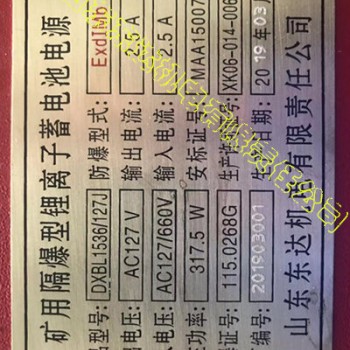 矿用隔爆型锂离子蓄电池电源
品型号: DXBL1536/127J 防爆型式: ExdIMb
出电压: AC127 V 输出电流: 2.5 A
入电压: AC127/660V 输入电流: 2.5 A
定功率: 317.5 W 安标证号: MAA15007
爆证号: 115.0268G 生产许可证号: XK06-014-006
品编号: 201903001 生产日期: 2019年03
山东东达机电有限责任公司